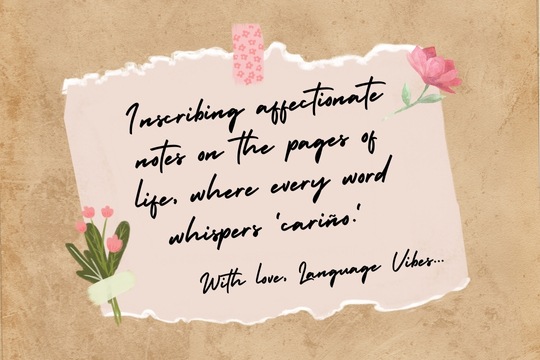 Inscribing affectionate
notes on the pages of
life, where every word
whispers 'cariño.'
With love, Language Vibes...